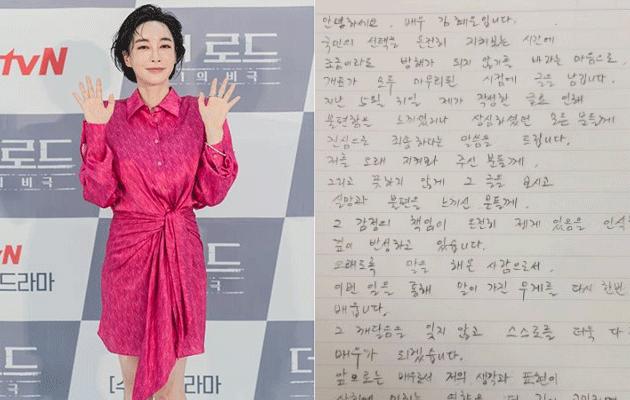 tvN
로드
의 비극
로드
의 비극
N
드라마
더
[수
라마
안녕하세요. 배우 김혜은입니다.
국민의 선택을 온전히 지켜보는 시간에
조금이라도 방해가 되지 않기를 바라는 마음으로,
개표가 모두 마무리된 시점에 글을 남깁니다.
지난 5월 31일 제가 작성한 글로 인해
불편함을 느끼셨거나 상심하셨던 모든 분들께
진심으로 죄송하다는 말씀을 드립니다.
저를 오래 지켜봐 주신 분들께,
그리고 뜻하지 않게 그 글을 보시고
실망과 불편을 느끼신 분들께.
그 감정의 책임이 온전히 제게 있음을 인식
깊이 반성하고 있습니다.
오래도록 말을 해온 사람으로서,
이번 일을 통해 말이 가진 무게를 다시 한번
배웁니다.
그 깨달음을 잊지 않고 스스로를 더욱 다
배우가 되겠습니다.
앞으로는 배우로서 저의 생각과 표현이